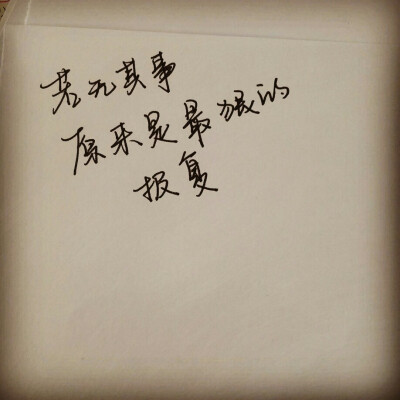 若无其事
原来是最狠的
报复